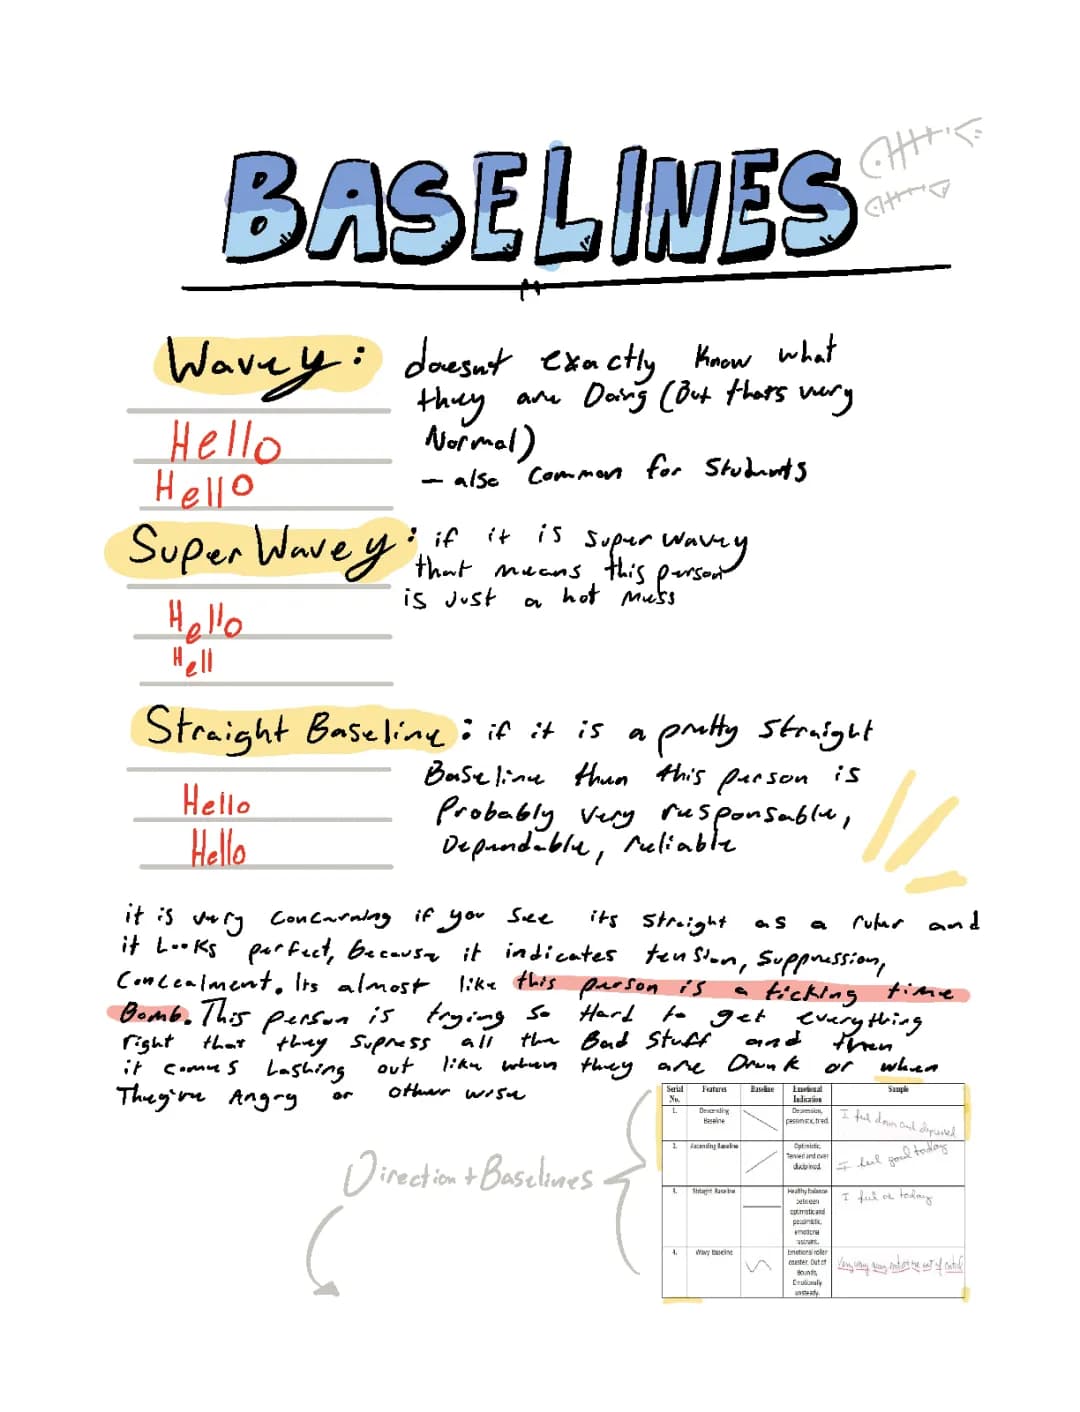 BASELINES
Wavey: doesnt exactly know what
they are Doing (But thats very
Normal)
– also common for Students
Hello
Hello
Super Wavey: if it is super wavey
that means this person
is Just a hot mess
Hello
Hell
Straight Baseline: if it is a pretty straight
Baseline then this person is
Probably very responsable,
Dependable, reliable
Hello
Hello
it is very concerning if you see its straight as a ruler and
it Looks perfect, because it indicates tension, Suppression,
Concealment. Its almost like this person is a ticking time
Bomb. This person is trying so Hard to get everything
right that they supress all the Bad Stuff and then
it comes Lashing out like when they are Drunk or when
They're Angry or other wise
Direction + Baselines
Serial No. Features Baseline Emotional Indication Sample
1. Descending Baseline Depression, pessimistic, tired. I feel down and depressed
2. Ascending Baseline Optimistic, Tensed and over disciplined. I feel good today
3. Straight Baseline Healthy balance between optimistic and pessimistic, emotional restraint. I feel ok today
4. Wavy Baseline Emotional roller coaster. Out of Bounds, Emotionally unsteady. Very very very out of control